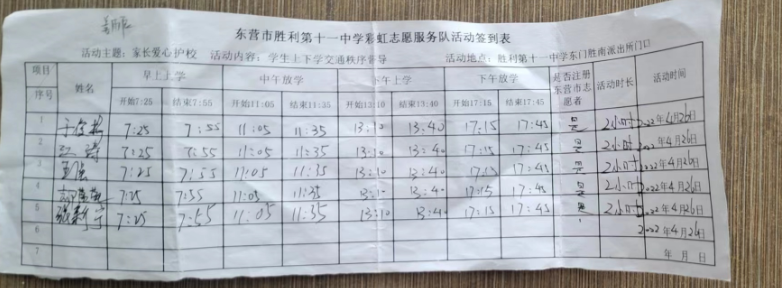 东营市胜利第十一中学彩虹志愿服务队活动签到表
活动主题：家长爱心护校 活动内容：学生上下学交通秩序督导 活动地点：胜利第十一中学东门胜南派出所门口
项目 序号 姓名 早上上学 中午放学 下午上学 下午放学 是否注册东营市志愿者 活动时长 活动时间
开始7:25 结束7:55 开始11:05 结束11:35 开始13:10 结束13:40 开始17:15 结束17:45
1 7:25 7:55 11:05 11:35 13:10 13:40 17:15 17:45 是 2小时 2022年4月26日
2 江涛 7:25 7:55 11:05 11:35 13:10 13:40 17:15 17:45 是 2小时 2022年4月26日
3 7:25 7:55 11:05 11:35 13:10 13:40 17:15 17:45 是 2小时 2022年4月26日
4 7:25 7:55 11:05 11:35 13:10 13:40 17:15 17:45 是 2小时 2022年4月26日
5 7:25 7:55 11:05 11:35 13:10 13:40 17:15 17:45 是 2小时 2022年4月26日
6 2022年4月26日
7 年 月 日